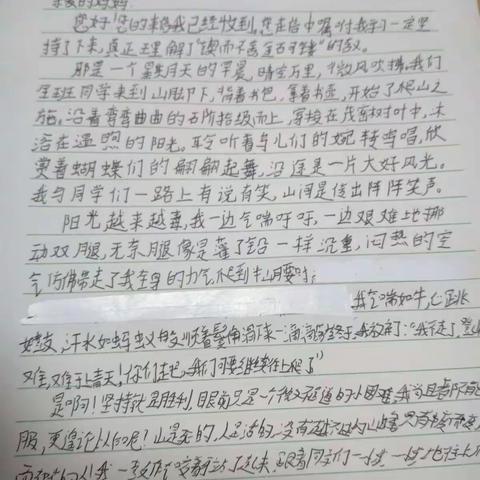 亲爱的妈妈:
您好!您的来信我已经收到,您在信中嘱咐我学习一定要
持了下来,真正理解了"锲而不舍金石可镂"的
那是一个艳阳天的早晨,晴空万里,微风吹拂,我们
全班同学来到山脚下,背着书包,拿着书,开始了爬山之
旅,沿着弯弯曲曲的石阶拾级而上,穿梭在茂密树叶中,沐
浴在温煦的阳光。聆听着鸟儿们的婉转鸣唱,欣
赏着蝴蝶们的翩翩起舞,沿途是一片大好风光。
我与同学们一路上有说有笑,山间是传出阵阵笑声。
阳光越来越毒,我一边气喘吁吁,一边艰难地挪
动双腿,无奈腿像是灌了铅一样沉重,闷热的空
气仿佛带走了我全身的力气,爬到半山腰时,
我气喘如牛,心跳
如鼓,汗水如蚂蚁般顺着鬓角滑落一滴,我放弃了:"我不行了,登山
难,难于上青天!你们走吧,我们可要继续往上爬了"
是啊!坚持就是胜利,眼前只是一个微不足道的小困难,我
服,更遑论人们呢?山是死的,人是活的,没有越不过的山
我一 站了起来,跟着同学们一步,一步地